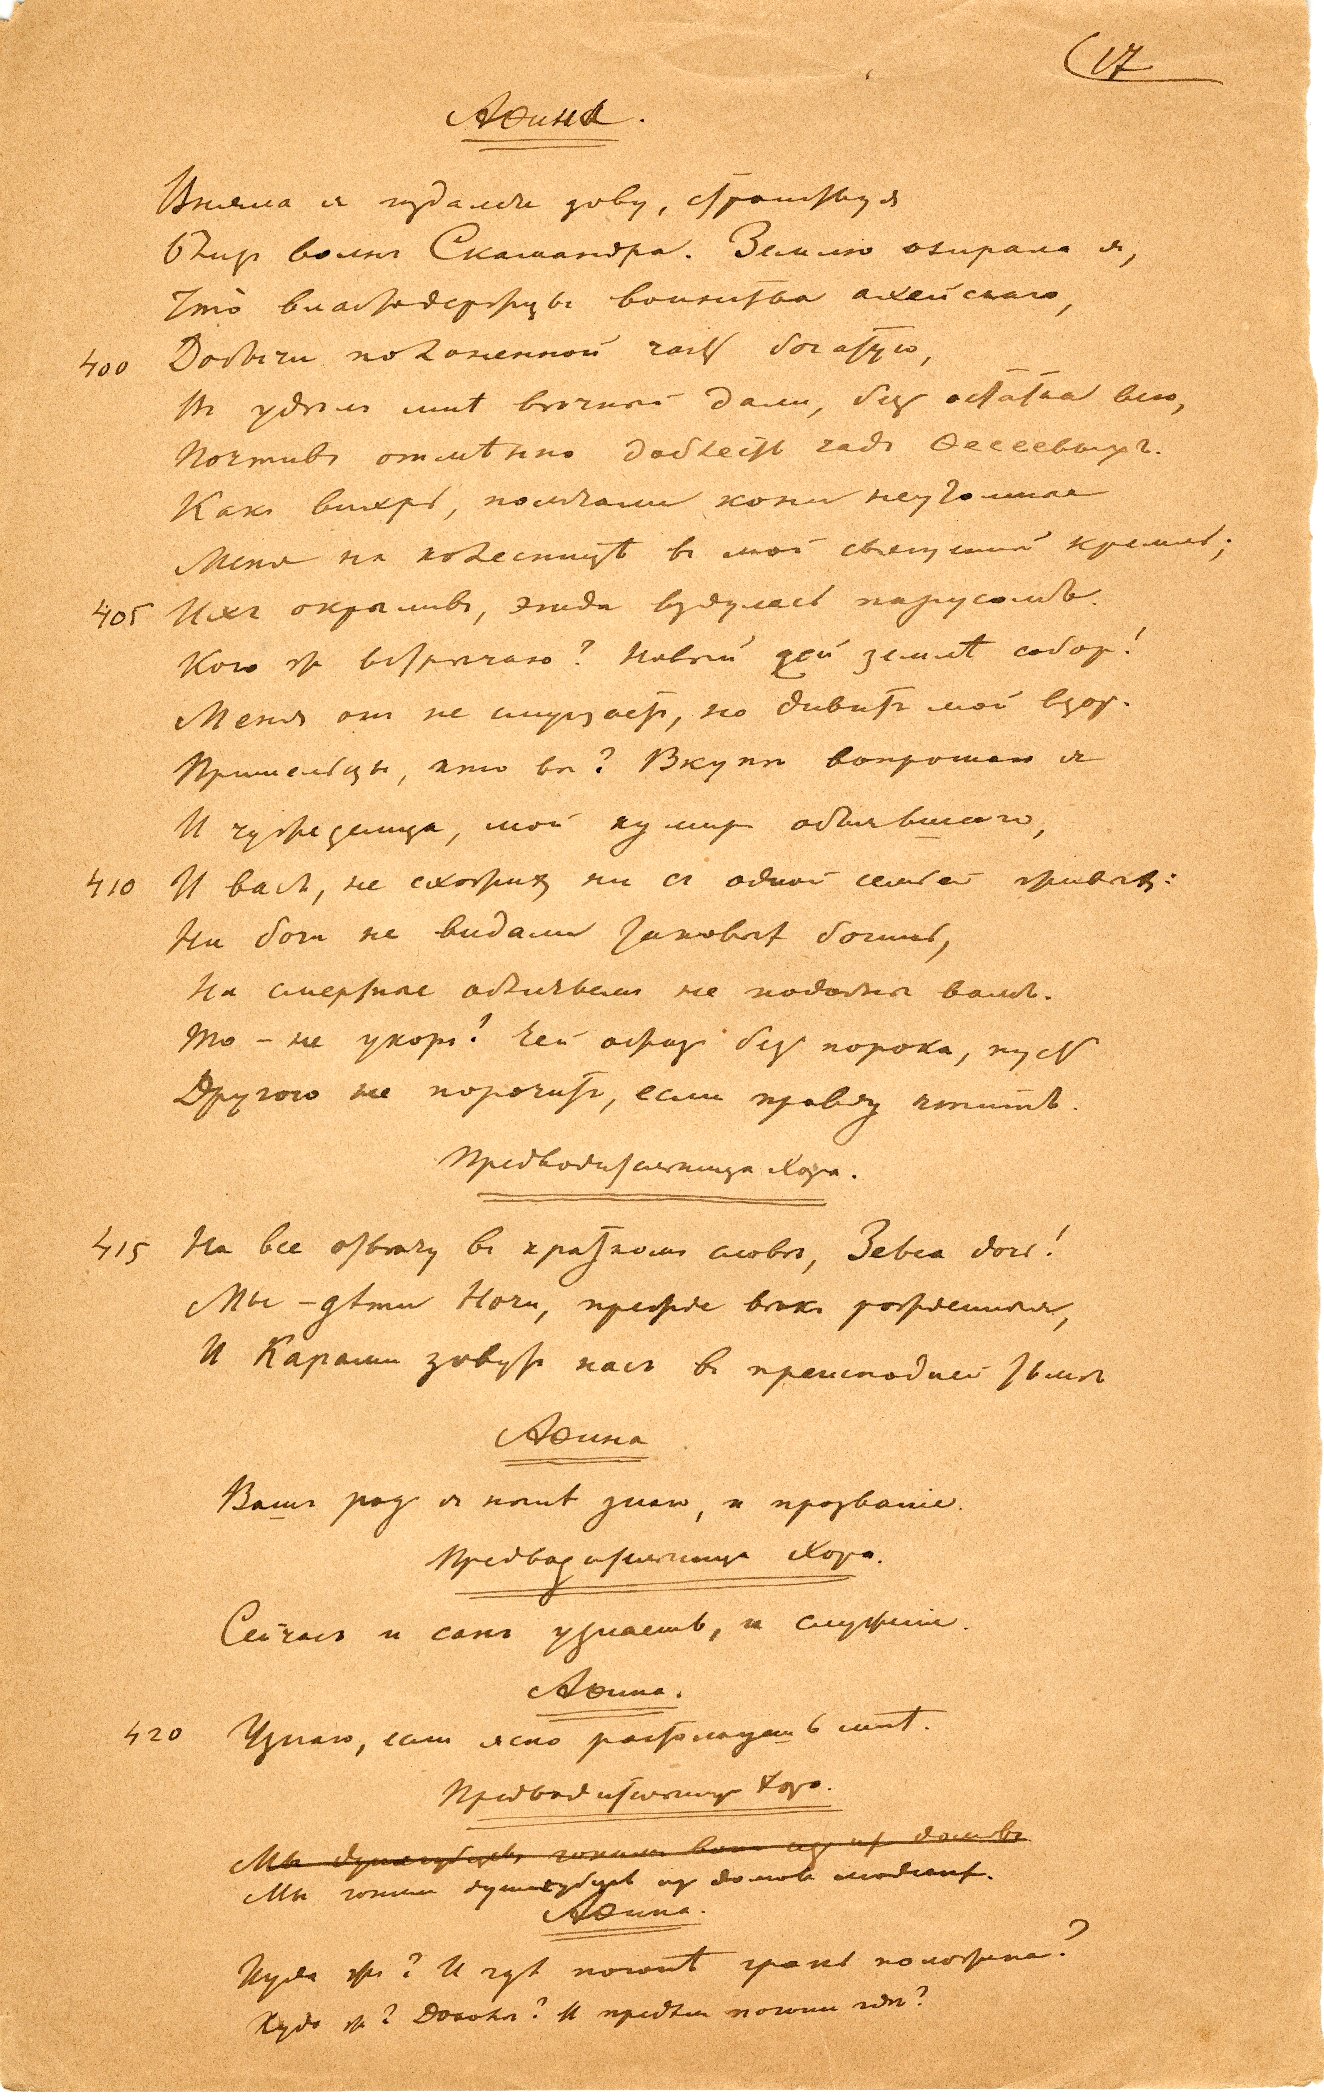 17
Аѳина.
Вняла я издалече зову, странствуя
близъ волнъ Скамандра. Землю озирала я,
Что властодержцы воинства ахейскаго,
400 Добычи копьеменной часть богатую,
Въ удѣлъ мнѣ вѣчный дали, безъ остатка всю,
Почтивъ отмѣнно доблесть чадъ Ѳесеевыхъ.
Какъ вихрь, помчали кони неутомные
Меня на колесницѣ въ мой священный кремль;
405 Ихъ окрыливъ, эгида вздулась парусомъ.
Кого жъ встрѣчаю? Новый сей землѣ соборъ!
Меня онъ не смущаетъ, но дивитъ мой взоръ.
Пришельцы, кто вы? Вкупѣ вопрошаю я
И чужеземца, мой кумиръ обнявшаго,
410 И васъ, не схожихъ ни съ одной семьей живыхъ:
Ни боги не видали таковыхъ богинь,
Ни смертные обличьемъ не подобны вамъ.
То – не укоръ! Чей образъ безъ порока, пусть
Другого не порочитъ, если правду чтитъ.
Предводительница Хора.
415 На все отвѣчу въ краткомъ словѣ, Зевса дочь!
Мы – дѣти Ночи, прежде вѣкъ рожденныя,
И Карами зовутъ насъ въ преисподней тьмѣ
Аѳина
Вашъ родъ я нынѣ знаю, и прозваніе.
Предводительница Хора.
Сейчасъ и санъ узнаешь, и служеніе.
Аѳина.
420 Узнаю, если ясно растолкуешь мнѣ.
Предводительница Хора.
Мы душегубцевъ гонимъ вонъ изъ домовъ
Мы гонимъ душегубцевъ изъ домовъ людскихъ.
Аѳина.
Куда жъ? И гдѣ погонѣ грань положена?
Куда жъ? Доколѣ? И предѣлъ погони гдѣ?